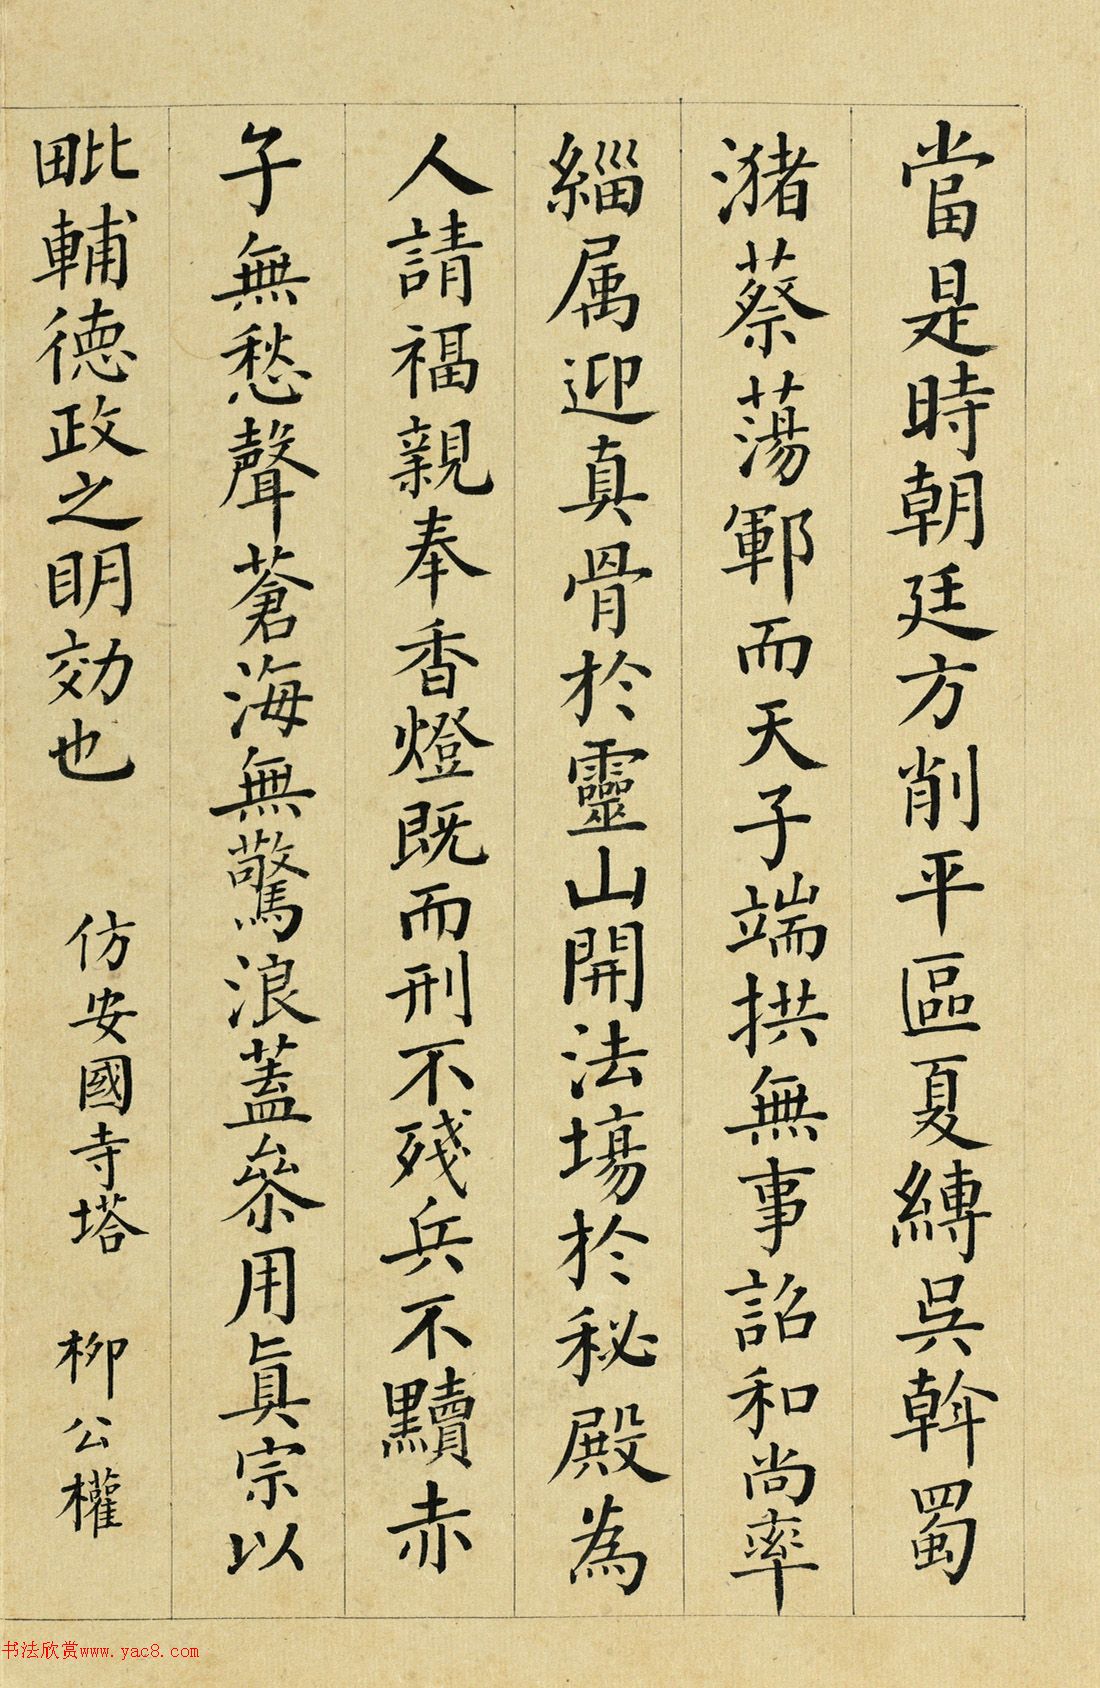 當是時朝廷方削平區夏縛吳斡蜀
瀦蔡蕩鄆而天子端拱無事詔和尚率
緇属迎真骨於靈山開法場於秘殿為
人請福親奉香燈既而刑不殘兵不黷赤
子無愁聲蒼海無驚浪蓋叅用眞宗以
毗輔德政之明効也
仿安國寺塔
柳公權
书法欣赏www.yac8.com